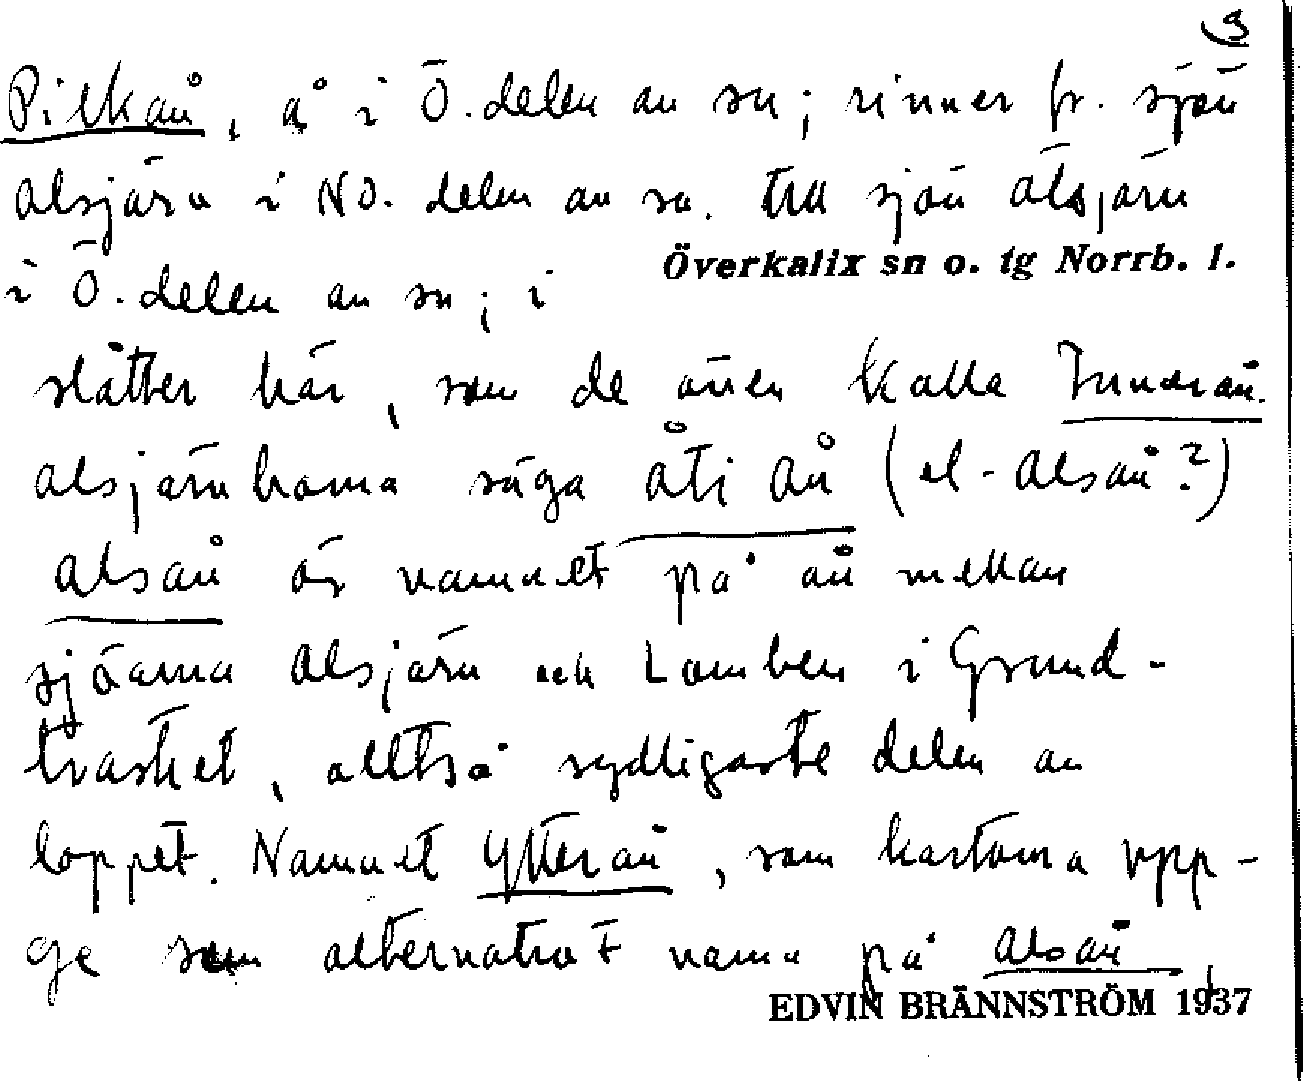 3
Pilkån, å i Ö. delen av sn; rinner fr. sjön
Alsjärv i NO. delen av sn. till sjön Älsjärv
Överkalix sn o. tg Norrb. l.
i Ö. delen av sn; i
slåtter här, som de även kalla Innerån.
Alsjärvborna säga åti ån (el. Alsån?)
Alsån är namnet på ån mellan
sjöarna Alsjärv och Lomben i Grund-
träsket, alltså sydligaste delen av
loppet. Namnet Ytterån, som kartorna upp-
ge som alternativt namn på Alsån,
EDVIN BRÄNNSTRÖM 1937